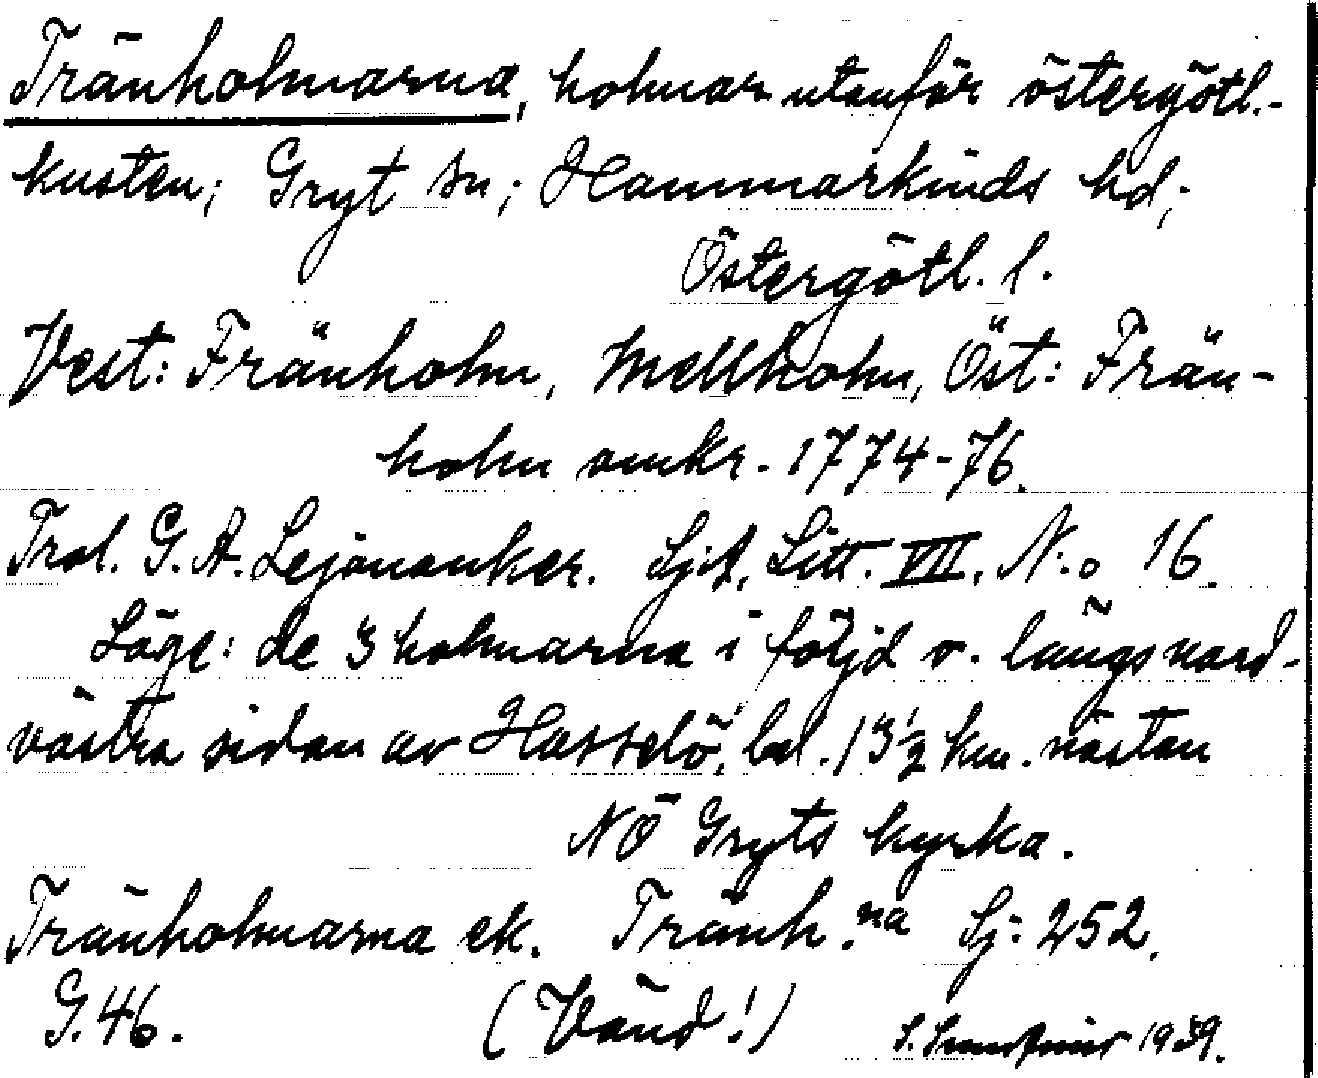 Tränholmarna, holmar utanför östergötl.-
kusten; Gryt sn; Hammarkinds hd;
Östergötl. l.
Vest: Fränholm, Mellholm, Öst: Frän-
holm omkr. 1774-76.
Trol. G. A. Lejonanker. Sjöf. Litt. VII. N:o 16.
Läge: de 3 holmarna i följd v. längs nord-
västra sidan av Hasselö, bel. 13½ km. nästan
NÖ Gryts kyrka.
Tränholmarna ek. Tränh.na Sj: 252.
G. 46. (Vänd!) 1939.